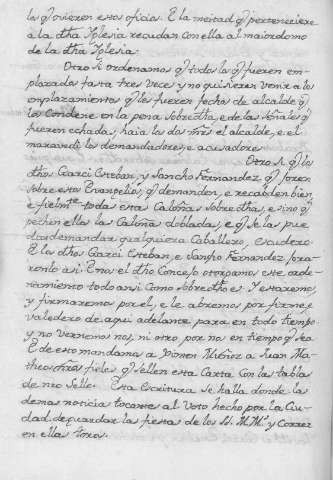 los q̃ ovieren estos oficios. E la meitad q̃ pertenesciere
a la dha Iglesia recudan con ella al maiordomo
de la dha Iglesia.
Otro si ordenamos q̃ todos los q̃ fueren em-
plazados fasta tres veces y no quisieren venir a los
emplazamientos q̃ les fueren fechos de alcalde q̃
los condene en la pena sobredha, e de las señales q̃
fueren echadas, haia los dos mrs el alcalde, e el
maravedi los demandadores, e acusadores.
Otro si q̃ los
dhos Garci Esteban, y Sancho Fernandez q̃ juren
sobre stos Evangelios, q̃ demanden, e recabden bien
e fielmte todas estas Caloñas sobredhas, e sino q̃
pechen ellos las Caloñas dobladas, e q̃ se las pue
da demandar qualquiera Caballero, escudero.
E los dhos Garci Esteban, e Sancho Fernandez jura-
ronlo asi. E nos el dho Concejo otorgamos este orde-
namiento todo asi como sobredho es. Y estaremos,
y firmaremos por el, e le abremos por firme, e
valedero de aqui adelante para en todo tiempo
y no vernemos nos, ni otro por nos en tiempo q̃ sea
E de esto mandamos a Ximon Muñoz a Juan Ma-
theos ntros fieles q̃ sellen esta Carta con las tablas
de nro sello. Esta Escritura se halla donde las
demas noticias tocantes al Voto hecho por la Ciu-
dad de guardar las fiestas de los Ss. M.M.s y Correr
en ellas toros.